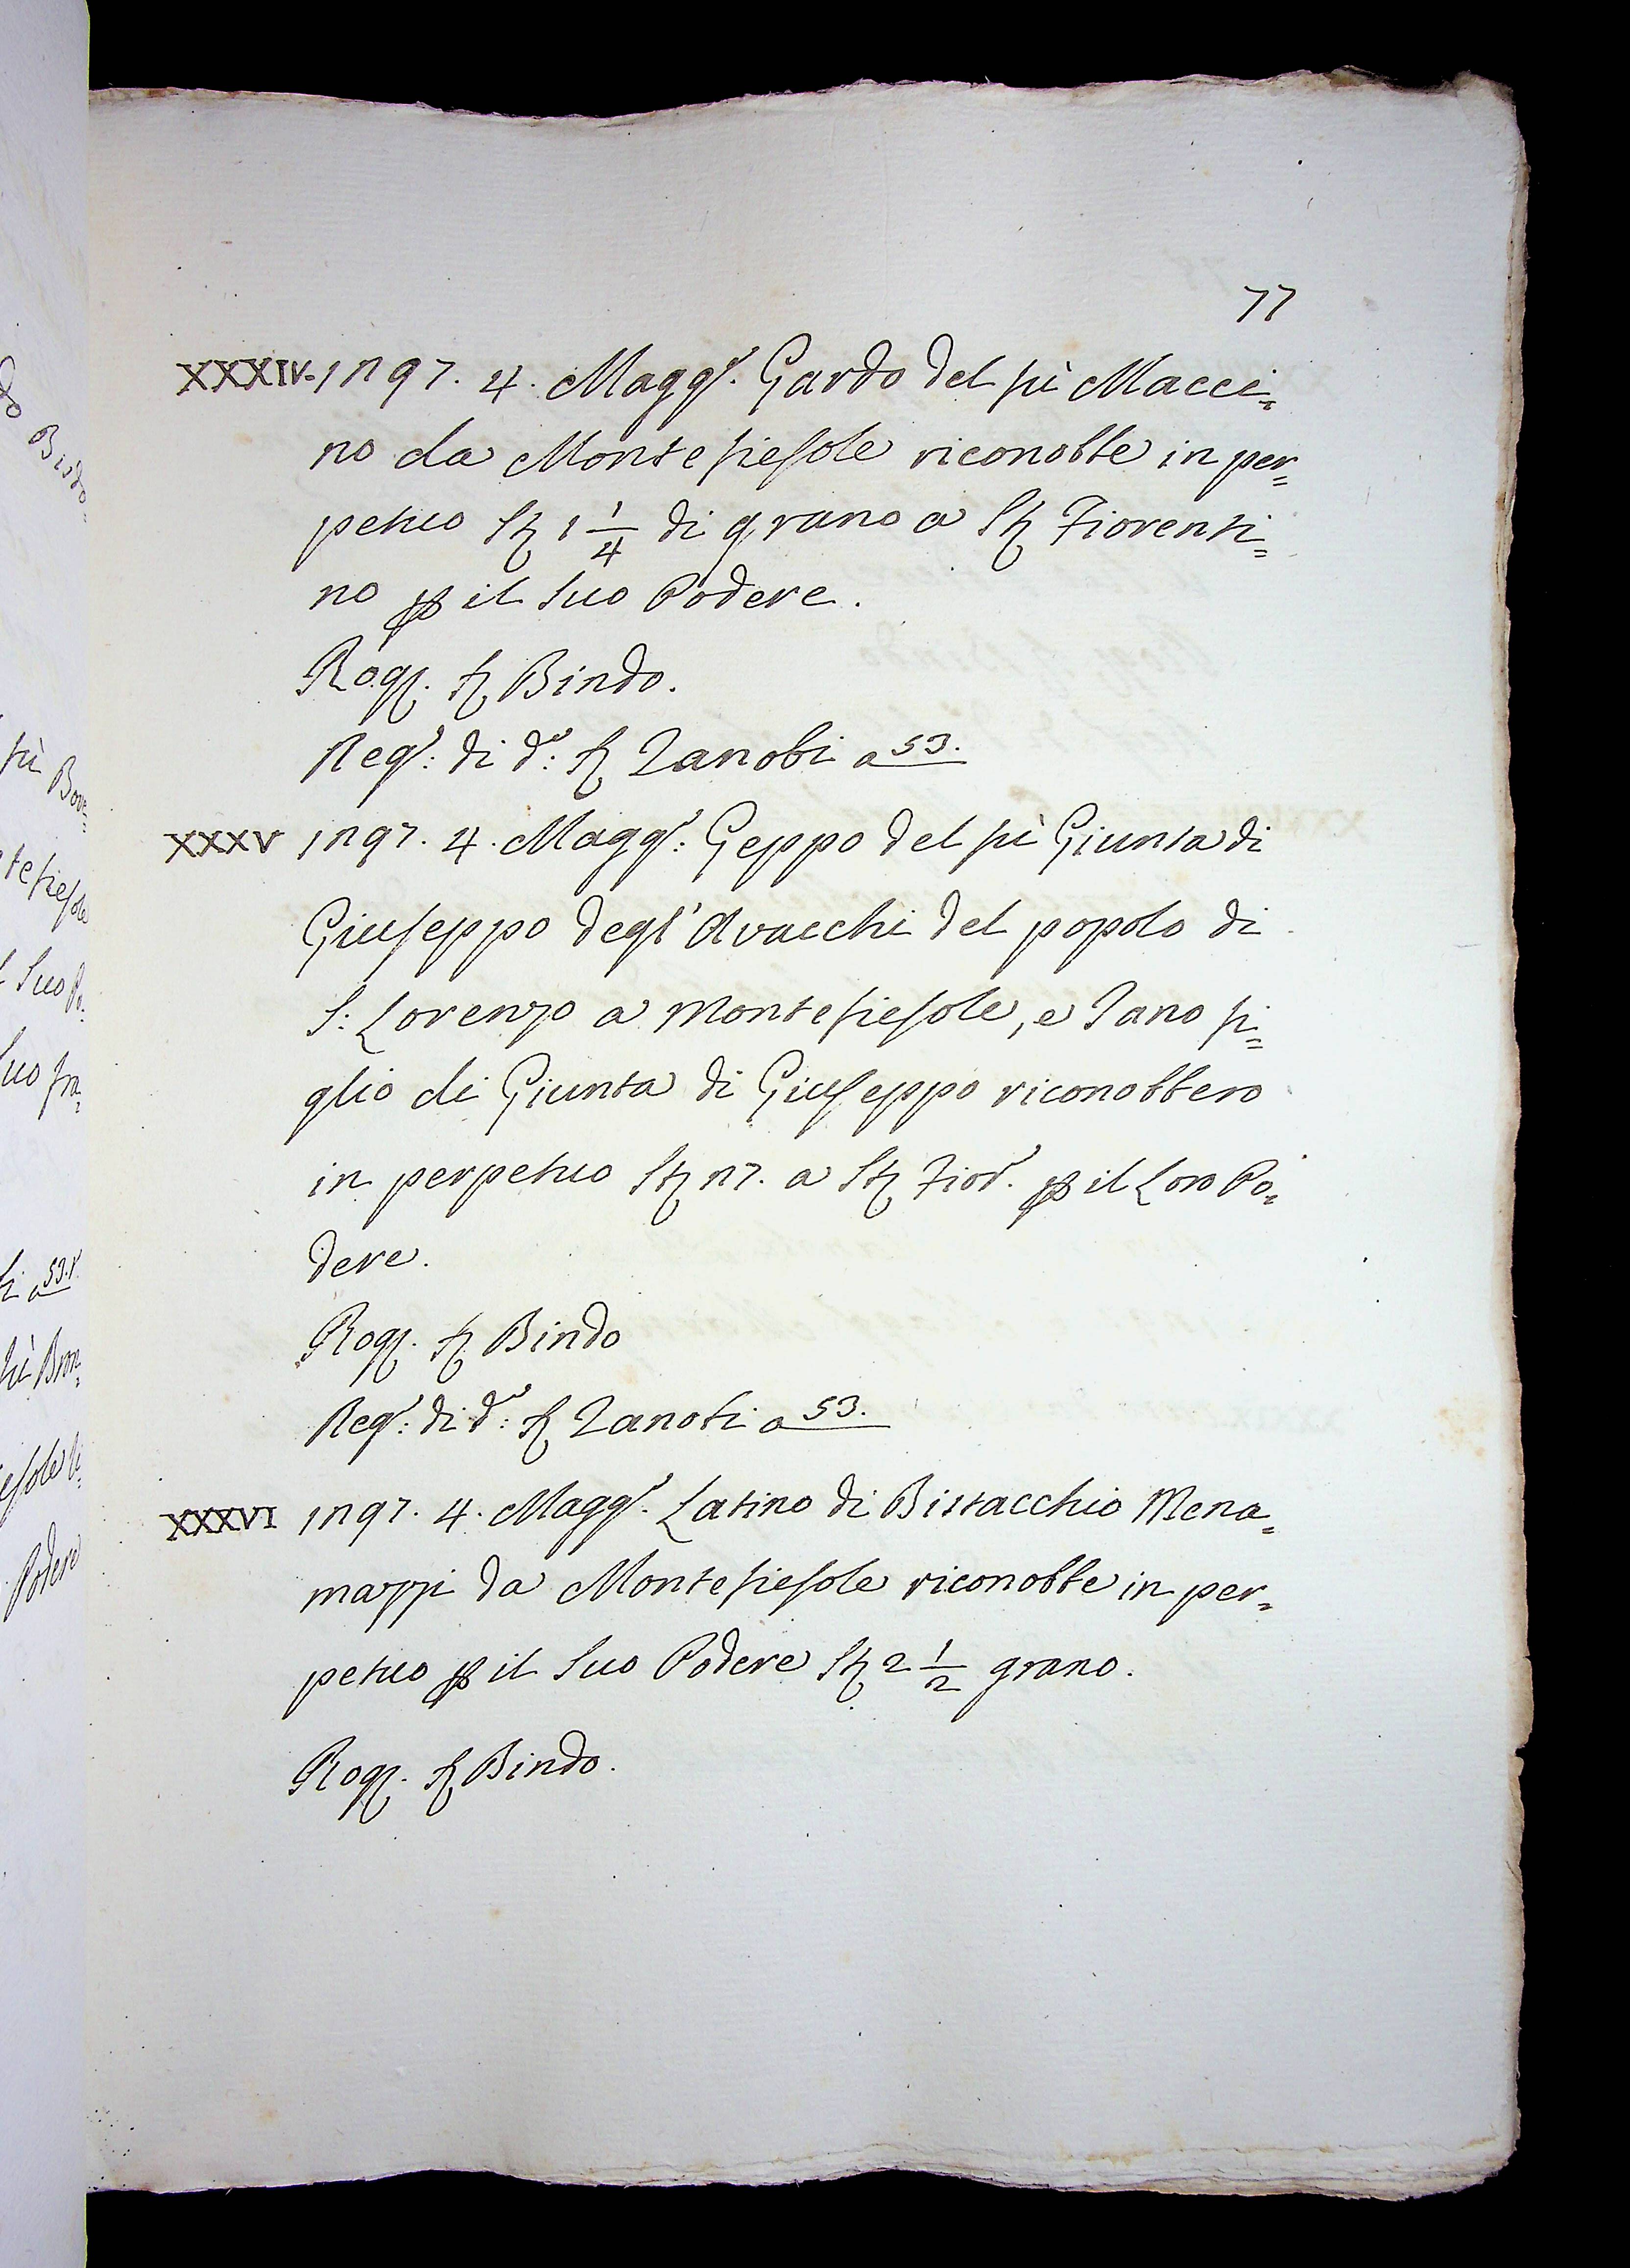 77
XXXIV. 1297. 4. Magg.º Gardo del fù Macci=
no da Montefiesole riconobbe in per=
petuo St. 1 1/4 di grano a St. Fiorenti=
no p il suo Podere.
Rog. S. Bindo.
Reg.º: di d.º: S. Zanobi a 53.
XXXV 1297. 4. Magg.º: Geppo del fù Giunta di
Giuseppo degl' Avacchi del popolo di
S: Lorenzo a Montefiesole, e Tano fi=
glio di Giunta di Giuseppo riconobbero
in perpetuo St. 27. a St. Fior.º p il Loro Po=
dere.
Rog. S. Bindo
Reg.º: di d.º: S. Zanobi a 53.
XXXVI 1297. 4. Magg.º Latino di Bistacchio Mena=
mazzi da Montefiesole riconobbe in per=
petuo p il suo Podere St. 2 1/2 grano.
Rog. S. Bindo.